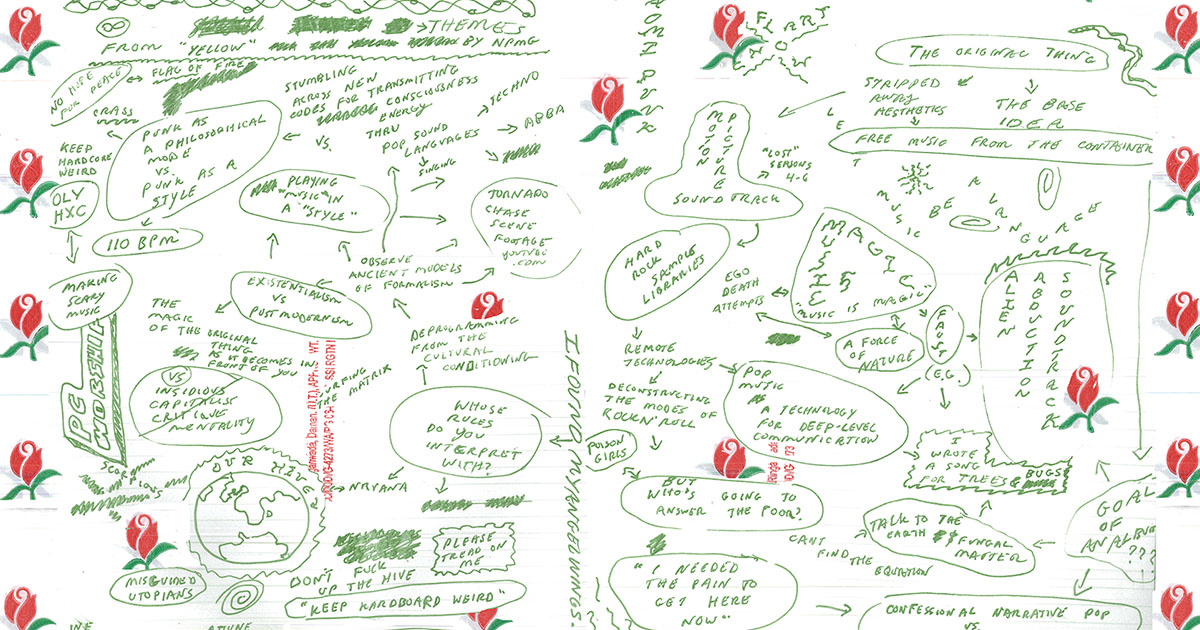 THEMES
FROM "YELLOW"
BY NPMG
NO HOPE
FOR PEACE
FLAG OF FIRE
CRASS
KEEP
HARDCORE
WEIRD
OLY
HXC
PUNK AS
A PHILOSOPHICAL
MODE
VS.
PUNK AS A
STYLE
110 BPM
STUMBLING
ACROSS NEW
CODES FOR TRANSMITTING
CONSCIOUSNESS
ENERGY
THRU
POP SOUND
LANGUAGES
VS.
SINGING
TECHNO
ABBA
PLAYING
"MUSIC" IN
A "STYLE"
TORNADO
CHASE
SCENE
FOOTAGE
YOUTUBE
.COM
OBSERVE
ANCIENT MODELS
OF FORMALISM
MAKING
SCARY
MUSIC
EXISTENTIALISM
VS
POST MODERNISM
THE
MAGIC
OF THE ORIGINAL
THING
AS IT BECOMES IN
FRONT OF YOU
VS
INSIDIOUS
CAPITALIST
CRITIQUE
MENTALITY
PC
WORSHIP
DEPROGRAMMING
FROM THE
CULTURAL
CONDITIONING
SURFING
THE MATRIX
WHOSE
RULES
DO YOU
INTERPRET
WITH?
NRVANA
SCORPIONS
OUR HIVE
DON'T FUCK
UP THE HIVE
PLEASE
TREAD ON
ME
MISGUIDED
UTOPIANS
"KEEP KARDBOARD WEIRD"
I FOUND MY ANGEL WINGS.
FLARY
THE ORIGINAL THING
STRIPPED
AWAY
AESTHETICS
THE BASE
IDEA
FREE MUSIC FROM THE CONTAINER
LET
MUSIC BE A LANGUAGE
MOTION
PICTURE
SOUNDTRACK
"LOST"
SEASONS
4-6
HARD
ROCK
SAMPLE
LIBRARIES
EGO
DEATH
ATTEMPTS
MAGIC
IS
MUSIC
"MUSIC IS MAGIC"
A FORCE
OF
NATURE
FAUST
(E.G.)
ALIEN
ABDUCTION
SOUNDTRACK
REMOTE
TECHNOLOGIES
DECONSTRUCTING
THE MODES OF
ROCK N' ROLL
POP
MUSIC
AS
A TECHNOLOGY
FOR DEEP-LEVEL
COMMUNICATION
POISON
GIRLS
I
WROTE
A SONG
FOR TREES & BUGS
BUT
WHO'S GOING TO
ANSWER THE POOR?
CANT
FIND THE
EQUATION
TALK TO THE
EARTH
FUNGAL
MATTER
GOAL
OF
AN ALBUM
???
"I NEEDED
THE PAIN TO
GET HERE
NOW"
CONFESSIONAL NARRATIVE POP
VS.